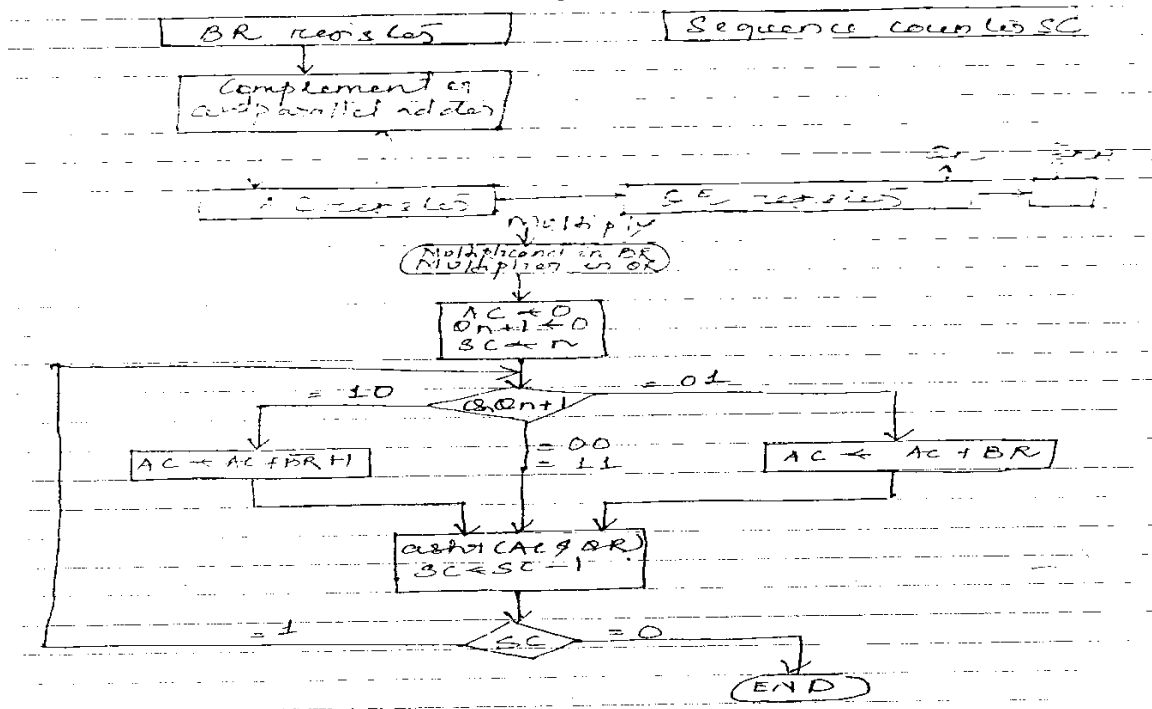 BR register
Sequence counter SC
Complement or
and parallel adder
AC register
QR register
Multiply
Multiplicand in BR
Multiplier in QR
AC ← 0
Qn+1 ← 0
SC ← n
= 10
= 01
QnQn+1
= 00
= 11
AC ← AC + B̅R̅ + 1
AC ← AC + BR
ashr (AC & QR)
SC ← SC - 1
= 1
SC
= 0
END